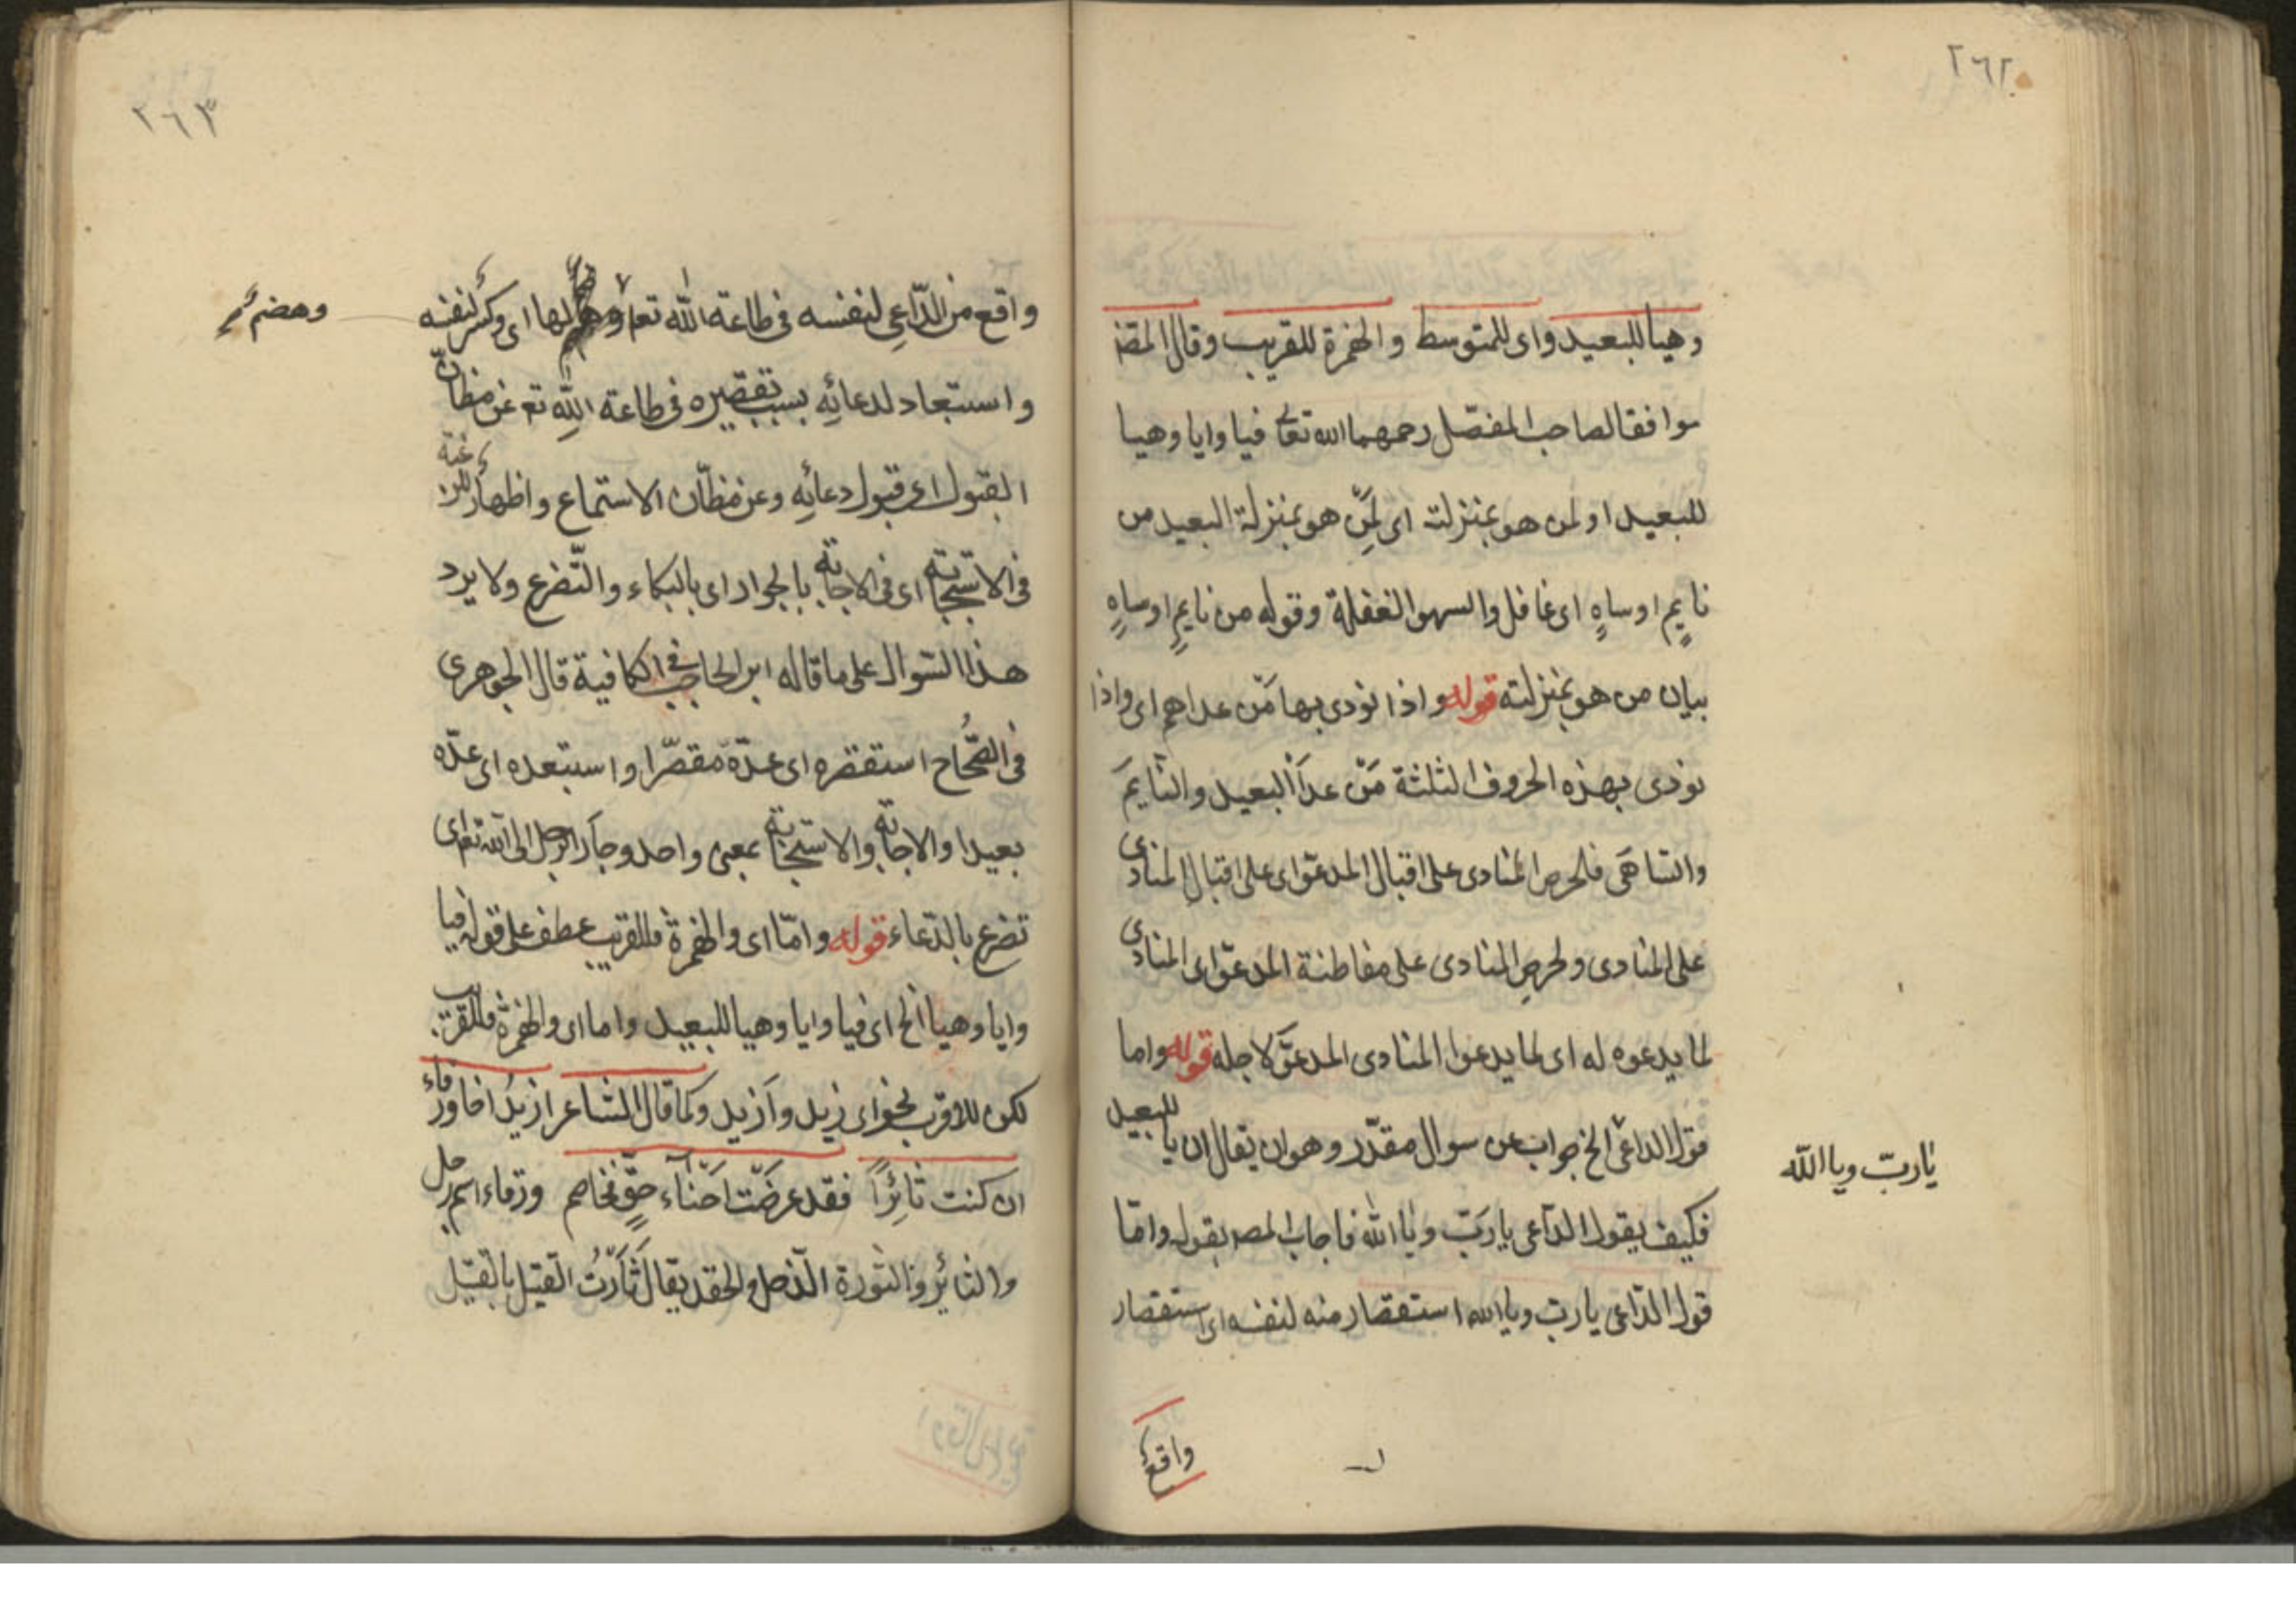 ٢٦٢
وهيا للبعيد واى للمتوسط والهمزة للقريب وقال المص
موافقا لصاحب المفصّل رحمهما الله تعالى فيا وايا وهيا
للبعيد او لمن هو بمنزلته اى لمَن هو بمنزلة البعيد من
نايمٍ او ساهٍ اى غافل والسهو الغفلة وقوله من نايمٍ او ساهٍ
بيان من هو بمنزلته قوله واذا نودى بها مَن عداهم اى واذا
نودى بهذه الحروف الثلثة مَن عدا البعيد والنايمَ
والساهَى فلحرص المنادى على اقبال المدعوّ اى على اقبال المنادى
على المنادى ولحرص المنادى على مفاطنة المدعوّ اى المنادى
لما يدعوه له اى لما يدعوا المنادى المدعوَّ لاجله قوله واما
قول الداعى الخ جواب عن سوال مقدّر وهو ان يقال ان يا للبعيد
يا ربّ ويا الله
فكيف يقول الداعى يا ربّ ويا الله فاجاب المص بقوله وامّا
قول الدّاعى يا ربّ ويا الله استقصار منه لنفسه اى استقصار
واقع
٢٦٣
واقع من الدّاعى لنفسه فى طاعة الله تعالى لها اى وكسر لنفسه
وهضم
واستبعاد لدعائه بسبب تقصيره فى طاعة الله تع عن مظانّ
القبول اى قبول دعائه وعن مظانّ الاستماع واظهار للرغبة
فى الاستجابة اى فى الاجابة بالجوار اى بالبكاء والتّضرع ولا يرد
هذا السّوال على ما قاله ابن الحاجب فى الكافية قال الجوهرى
فى الصّحاح استقصره اى عدّه مقصّرا واستبعده اى عدّه
بعيدا والاجابة والاستجابة بمعنى واحد وجأر الرجل الى الله تعالى اى
تضرع بالدّعاء قوله وامّا اى والهمزة فللقريب عطف على قوله فيا
وايا وهيا الخ اى فيا وايا وهيا للبعيد واما اى والهمزة فللقريب
لكن للاقرب نحو اى زيد وأزيد وكما قال الشاعر ازيدُ اخا ورقاء
ان كنت ثائرًا فقد عرضت احناء حقٍّ فخاصم وورقاء اسم رجل
والثائر ذا الثورة الذحل والحقد يقال ثَأرْتُ القتيل بالقتيل